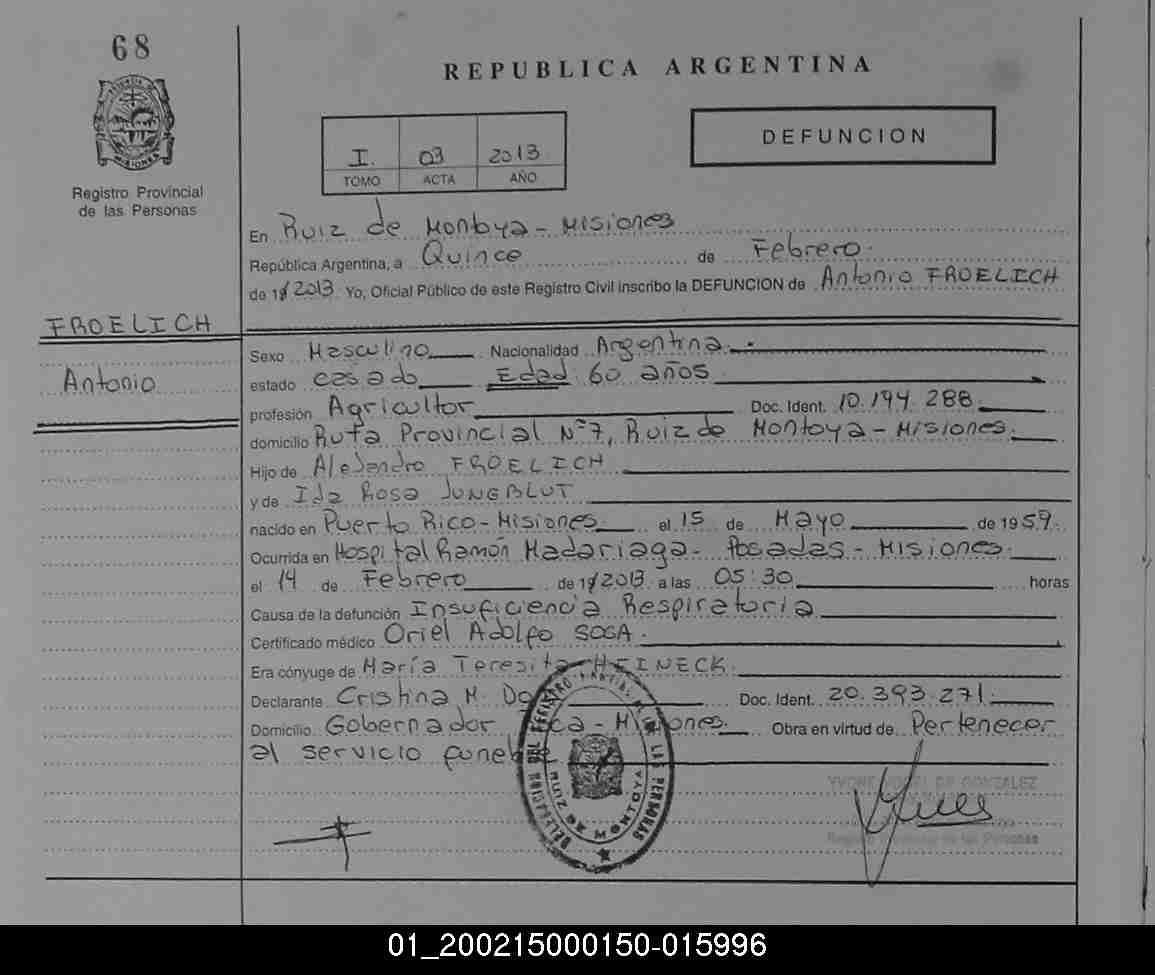 68
REPUBLICA ARGENTINA
MISIONES
Registro Provincial
de las Personas
I. 03 2013
TOMO ACTA AÑO
DEFUNCION
En Ruiz de Montoya - Misiones
República Argentina, a Quince de Febrero.
de 19 2013. Yo, Oficial Público de este Registro Civil inscribo la DEFUNCION de Antonio FROELICH
FROELICH
Antonio
Sexo Masculino Nacionalidad Argentina
estado casado Edad 60 años
profesión Agricultor Doc. Ident. 10.194.288
domicilio Ruta Provincial Nº 7, Ruiz de Montoya - Misiones.
Hijo de Alejandro FROELICH
y de Ida Rosa JUNGBLUT
nacido en Puerto Rico - Misiones el 15 de Mayo de 1959.
Ocurrida en Hospital Ramón Madariaga - Posadas - Misiones.
el 14 de Febrero de 19 2013 a las 05:30 horas
Causa de la defunción Insuficiencia Respiratoria
Certificado médico Oriel Adolfo SOSA.
Era cónyuge de María Teresita HEINECK.
Declarante Cristina M. Doc. Ident. 20.393.271.
Domicilio Gobernador Misiones. Obra en virtud de Pertenecer
al servicio funebre
DELEGACION DEL REGISTRO DE LAS PERSONAS
RUIZ DE MONTOYA
YVONNE DE GONZALEZ
de las Personas
01_200215000150-015996